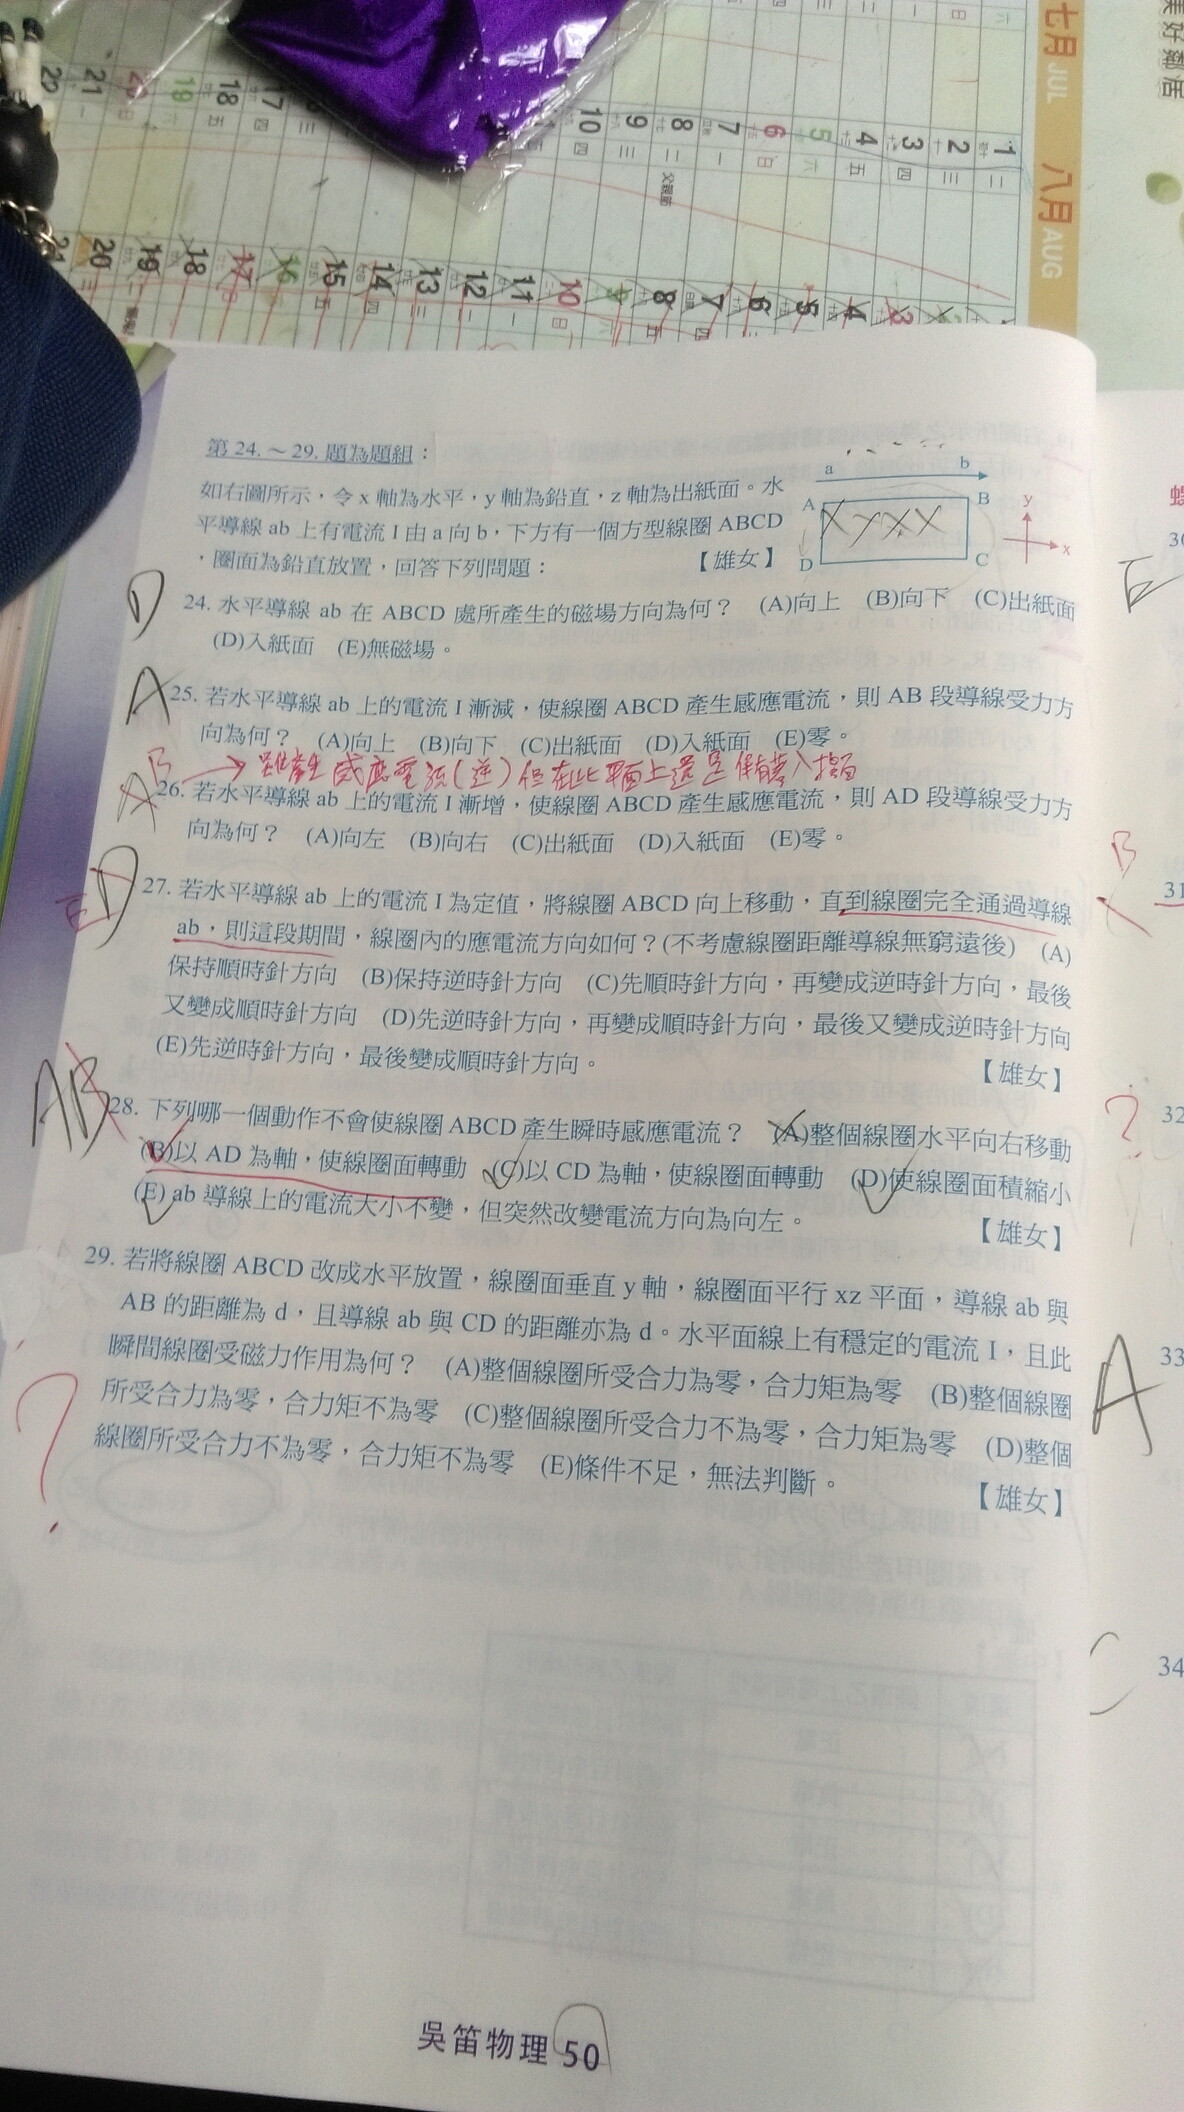 美好鄰居
七月 JUL
八月 AUG
第 24.～29. 題為題組：
如右圖所示，令 x 軸為水平，y 軸為鉛直，z 軸為出紙面。水
平導線 ab 上有電流 I 由 a 向 b，下方有一個方型線圈 ABCD
，圈面為鉛直放置，回答下列問題： 【雄女】
a b
A B
D C
y
x
D
24. 水平導線 ab 在 ABCD 處所產生的磁場方向為何？ (A)向上 (B)向下 (C)出紙面
(D)入紙面 (E)無磁場。
A
25. 若水平導線 ab 上的電流 I 漸減，使線圈 ABCD 產生感應電流，則 AB 段導線受力方
向為何？ (A)向上 (B)向下 (C)出紙面 (D)入紙面 (E)零。
B
A
26. 若水平導線 ab 上的電流 I 漸增，使線圈 ABCD 產生感應電流，則 AD 段導線受力方
向為何？ (A)向左 (B)向右 (C)出紙面 (D)入紙面 (E)零。
E D
27. 若水平導線 ab 上的電流 I 為定值，將線圈 ABCD 向上移動，直到線圈完全通過導線
ab，則這段期間，線圈內的應電流方向如何？(不考慮線圈距離導線無窮遠後) (A)
保持順時針方向 (B)保持逆時針方向 (C)先順時針方向，再變成逆時針方向，最後
又變成順時針方向 (D)先逆時針方向，再變成順時針方向，最後又變成逆時針方向
(E)先逆時針方向，最後變成順時針方向。 【雄女】
AB
28. 下列哪一個動作不會使線圈 ABCD 產生瞬時感應電流？ (A)整個線圈水平向右移動
(B)以 AD 為軸，使線圈面轉動 (C)以 CD 為軸，使線圈面轉動 (D)使線圈面積縮小
(E) ab 導線上的電流大小不變，但突然改變電流方向為向左。 【雄女】
29. 若將線圈 ABCD 改成水平放置，線圈面垂直 y 軸，線圈面平行 xz 平面，導線 ab 與
AB 的距離為 d，且導線 ab 與 CD 的距離亦為 d。水平面線上有穩定的電流 I，且此
瞬間線圈受磁力作用為何？ (A)整個線圈所受合力為零，合力矩為零 (B)整個線圈
所受合力為零，合力矩不為零 (C)整個線圈所受合力不為零，合力矩為零 (D)整個
線圈所受合力不為零，合力矩不為零 (E)條件不足，無法判斷。 【雄女】
?
吳笛物理 50
E
30
B
31
?
32
A
33
34